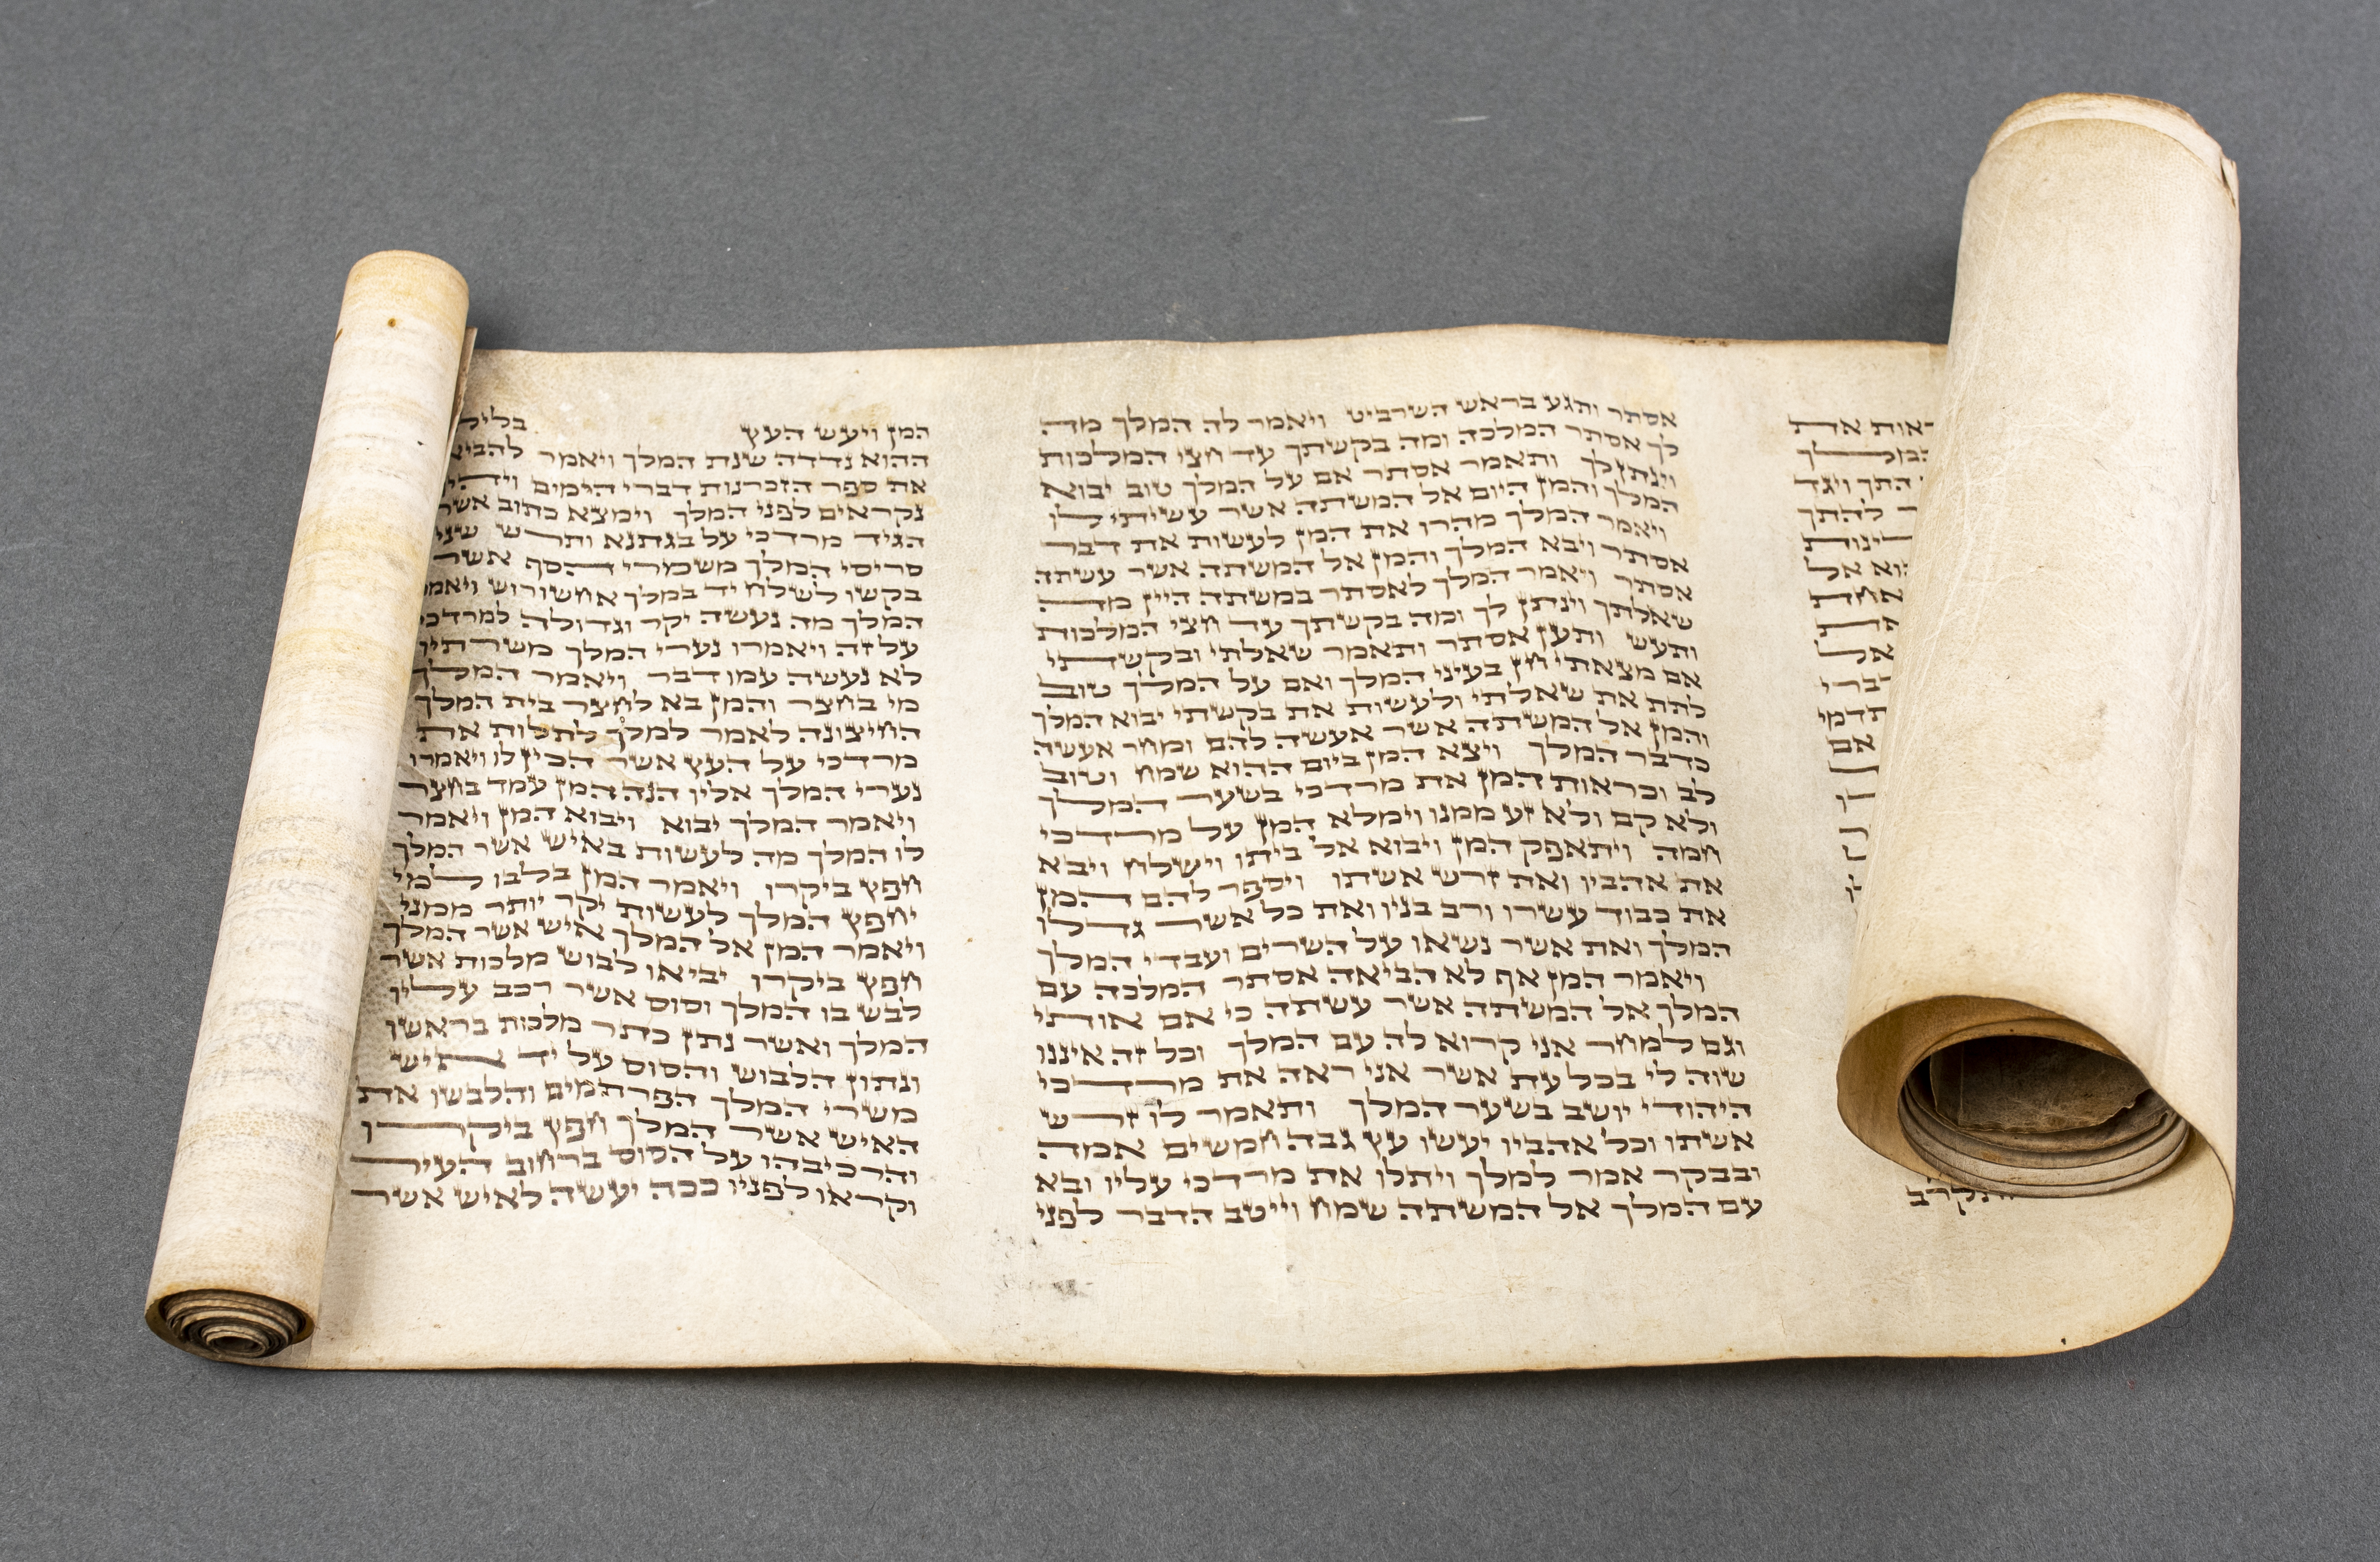 את
התך ויגד
להתך
אל
אל
אם
אסתר ותגע בראש השרביט ויאמר לה המלך מה
לך אסתר המלכה ומה בקשתך עד חצי המלכות
וינתן לך ותאמר אסתר אם על המלך טוב יבוא
המלך והמן היום אל המשתה אשר עשיתי לו
ויאמר המלך מהרו את המן לעשות את דבר
אסתר ויבא המלך והמן אל המשתה אשר עשתה
אסתר ויאמר המלך לאסתר במשתה היין מה
שאלתך וינתן לך ומה בקשתך עד חצי המלכות
ותעש ותען אסתר ותאמר שאלתי ובקשתי
אם מצאתי חן בעיני המלך ואם על המלך טוב
לתת את שאלתי ולעשות את בקשתי יבוא המלך
והמן אל המשתה אשר אעשה להם ומחר אעשה
כדבר המלך ויצא המן ביום ההוא שמח וטוב
לב וכראות המן את מרדכי בשער המלך
ולא קם ולא זע ממנו וימלא המן על מרדכי
חמה ויתאפק המן ויבוא אל ביתו וישלח ויבא
את אהביו ואת זרש אשתו ויספר להם המן
את כבוד עשרו ורב בניו ואת כל אשר גדלו
המלך ואת אשר נשאו על השרים ועבדי המלך
ויאמר המן אף לא הביאה אסתר המלכה עם
המלך אל המשתה אשר עשתה כי אם אותי
וגם למחר אני קרוא לה עם המלך וכל זה איננו
שוה לי בכל עת אשר אני ראה את מרדכי
היהודי יושב בשער המלך ותאמר לו זרש
אשתו וכל אהביו יעשו עץ גבה חמשים אמה
ובבקר אמר למלך ויתלו את מרדכי עליו ובא
עם המלך אל המשתה שמח וייטב הדבר לפני
המן ויעש העץ
ההוא נדדה שנת המלך ויאמר
את ספר הזכרנות דברי הימים
נקראים לפני המלך וימצא כתוב אשר
הגיד מרדכי על בגתנא ותרש שני
סריסי המלך משמרי הסף אשר
בקשו לשלח יד במלך אחשורוש ויאמר
המלך מה נעשה יקר וגדולה למרדכי
על זה ויאמרו נערי המלך משרתיו
לא נעשה עמו דבר ויאמר המלך
מי בחצר והמן בא לחצר בית המלך
החיצונה לאמר למלך לתלות את
מרדכי על העץ אשר הכין לו ויאמרו
נערי המלך אליו הנה המן עמד בחצר
ויאמר המלך יבוא ויבוא המן ויאמר
לו המלך מה לעשות באיש אשר המלך
חפץ ביקרו ויאמר המן בלבו למי
יחפץ המלך לעשות יקר יותר ממני
ויאמר המן אל המלך איש אשר המלך
חפץ ביקרו יביאו לבוש מלכות אשר
לבש בו המלך וסוס אשר רכב עליו
המלך ואשר נתן כתר מלכות בראשו
ונתון הלבוש והסוס על יד איש
משרי המלך הפרתמים והלבשו את
האיש אשר המלך חפץ ביקרו
והרכיבהו על הסוס ברחוב העיר
וקראו לפניו ככה יעשה לאיש אשר